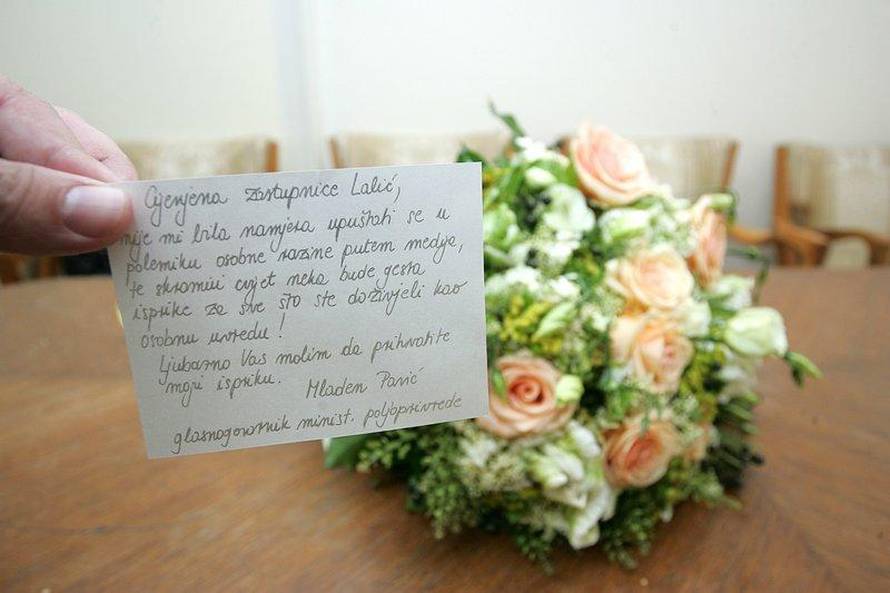 Cijenjena zastupnice Lalić,
nije mi bila namjera upuštati se u
polemiku osobne razine putem medija,
te skromni cvijet neka bude gesta
isprike za sve što ste doživjeli kao
osobnu uvredu!
Ljubazno Vas molim da prihvatite
moju ispriku. Mladen Pavić
glasnogovornik minist. poljoprivrede